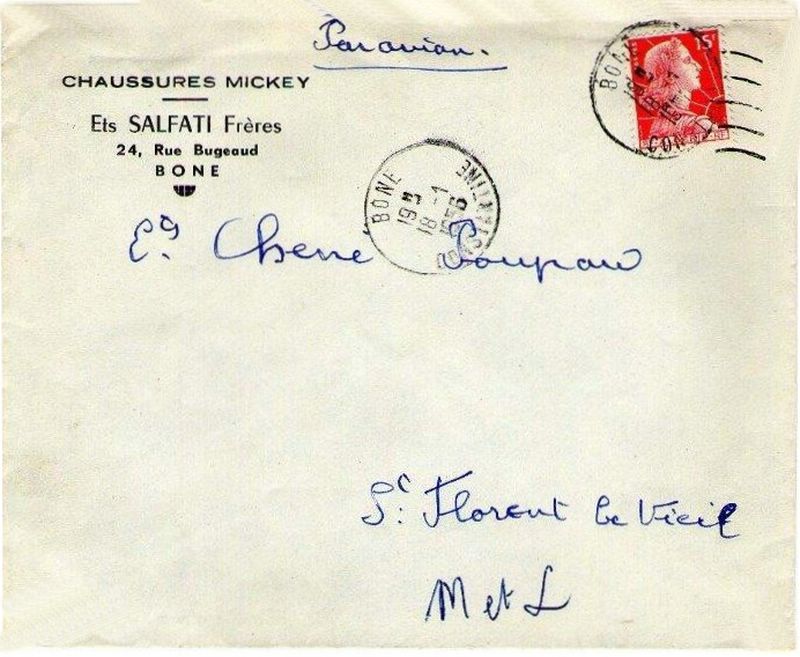 Par avion.
CHAUSSURES MICKEY
Ets SALFATI Frères
24, Rue Bugeaud
BONE
15F
BONE
CONS
BONE
19 H
18 - 1
1956
CONSTANTINE
Ets Chene Poupau
St Florent le Vieil
M et L